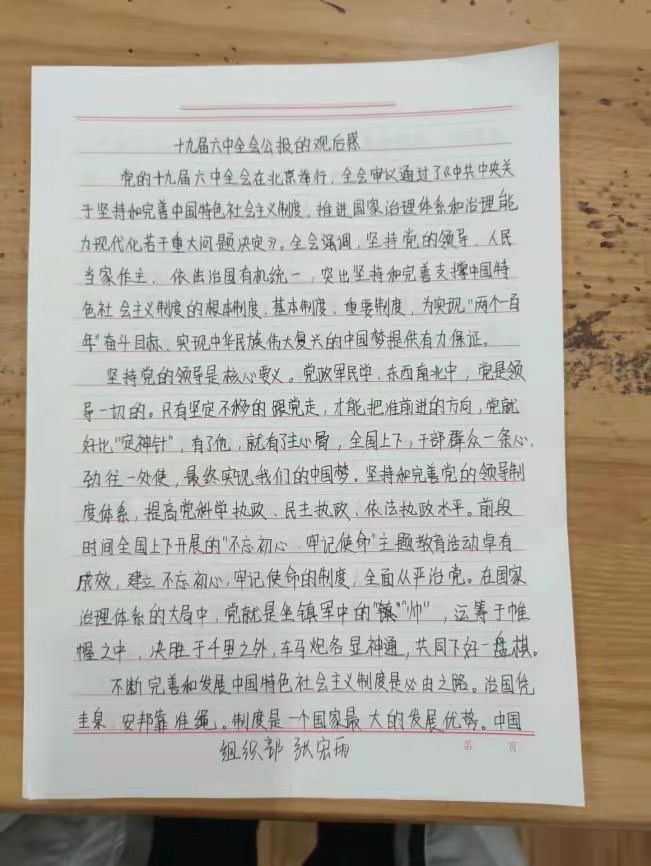 十九届六中全会公报的观后感
党的十九届六中全会在北京举行,全会审议通过了《中共中央关
于坚持和完善中国特色社会主义制度、推进国家治理体系和治理能
力现代化若干重大问题决定》。全会强调,坚持党的领导、人民
当家作主、依法治国有机统一,突出坚持和完善支撑中国特
色社会主义制度的根本制度、基本制度、重要制度,为实现"两个一百
年"奋斗目标、实现中华民族伟大复兴的中国梦提供有力保证。
坚持党的领导是核心要义。党政军民学,东西南北中,党是领
导一切的。只有坚定不移的跟党走,才能把准前进的方向,党就
好比"定神针",有了他,就有了主心骨,全国上下,干部群众一条心,
劲往一处使,最终实现我们的中国梦。坚持和完善党的领导制
度体系,提高党科学执政、民主执政、依法执政水平。前段
时间全国上下开展的"不忘初心、牢记使命"主题教育活动卓有
成效,建立不忘初心,牢记使命的制度,全面从严治党。在国家
治理体系的大局中,党就是坐镇军中的"帅",运筹于帷
幄之中,决胜于千里之外,车马炮各显神通,共同下好一盘棋。
不断完善和发展中国特色社会主义制度是必由之路。治国凭
圭臬,安邦靠准绳。制度是一个国家最大的发展优势。中国
组织部 张宏雨
第 页